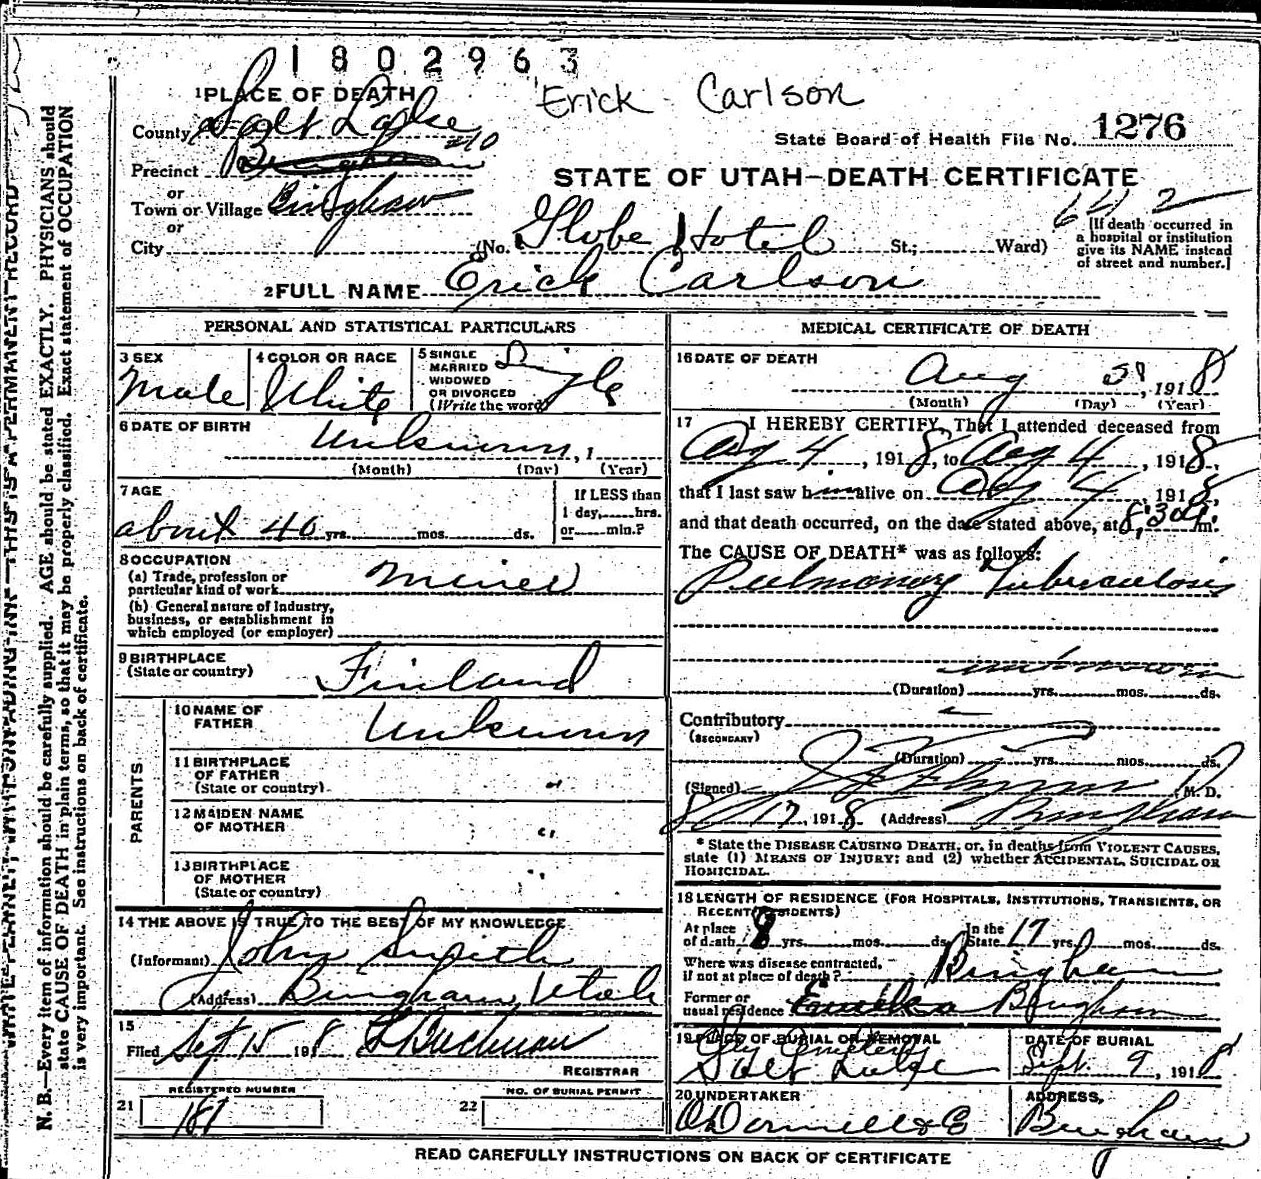 1802963
Erick Carlson
1 PLACE OF DEATH
County Salt Lake
State Board of Health File No. 1276
Precinct Bingham
STATE OF UTAH—DEATH CERTIFICATE
or
Town or Village Bingham
or
City (No. Globe Hotel St.; Ward)
[If death occurred in
a hospital or institution
give its NAME instead
of street and number.]
2 FULL NAME Erick Carlson
PERSONAL AND STATISTICAL PARTICULARS
3 SEX
Male
4 COLOR OR RACE
White
5 SINGLE
MARRIED
WIDOWED
OR DIVORCED
(Write the word)
Single
6 DATE OF BIRTH
Unknown, 1
(Month) (Day) (Year)
7 AGE
about 40 yrs. mos. ds.
If LESS than
1 day, hrs.
or min.?
8 OCCUPATION
(a) Trade, profession or
particular kind of work
Miner
(b) General nature of industry,
business, or establishment in
which employed (or employer)
9 BIRTHPLACE
(State or country)
Finland
PARENTS
10 NAME OF
FATHER
Unknown
11 BIRTHPLACE
OF FATHER
(State or country)
"
12 MAIDEN NAME
OF MOTHER
"
13 BIRTHPLACE
OF MOTHER
(State or country)
"
14 THE ABOVE IS TRUE TO THE BEST OF MY KNOWLEDGE
(Informant) John Smith
(Address) Bingham, Utah
15
Filed Sept 15 1918
REGISTRAR
21
REGISTERED NUMBER
187
22
NO. OF BURIAL PERMIT
MEDICAL CERTIFICATE OF DEATH
16 DATE OF DEATH
Aug , 1918
(Month) (Day) (Year)
17 I HEREBY CERTIFY, That I attended deceased from
Aug 4, 1918, to Aug 4, 1918,
that I last saw him alive on Aug 4, 1918,
and that death occurred, on the date stated above, at 8:30 m.
The CAUSE OF DEATH* was as follows:
Pulmonary Tuberculosis
unknown
(Duration) yrs. mos. ds.
Contributory
(SECONDARY)
(Duration) yrs. mos. ds.
(Signed) , M. D.
8/17, 1918 (Address) Bingham
* State the DISEASE CAUSING DEATH, or, in deaths from VIOLENT CAUSES,
state (1) MEANS OF INJURY; and (2) whether ACCIDENTAL, SUICIDAL OR
HOMICIDAL.
18 LENGTH OF RESIDENCE (FOR HOSPITALS, INSTITUTIONS, TRANSIENTS, OR
RECENT RESIDENTS)
At place
of death 8 yrs. mos. ds.
In the
State 17 yrs. mos. ds.
Where was disease contracted,
if not at place of death? Bingham
Former or
usual residence Bingham
19 PLACE OF BURIAL OR REMOVAL
City Cemetery
Salt Lake
DATE OF BURIAL
Sept. 9, 1918
20 UNDERTAKER
O'Donnell & Co
ADDRESS,
Bingham
READ CAREFULLY INSTRUCTIONS ON BACK OF CERTIFICATE
WRITE PLAINLY WITH UNFADING INK—THIS IS A PERMANENT RECORD
N. B.—Every item of information should be carefully supplied. AGE should be stated EXACTLY. PHYSICIANS should
state CAUSE OF DEATH in plain terms, so that it may be properly classified. Exact statement of OCCUPATION
is very important. See instructions on back of certificate.